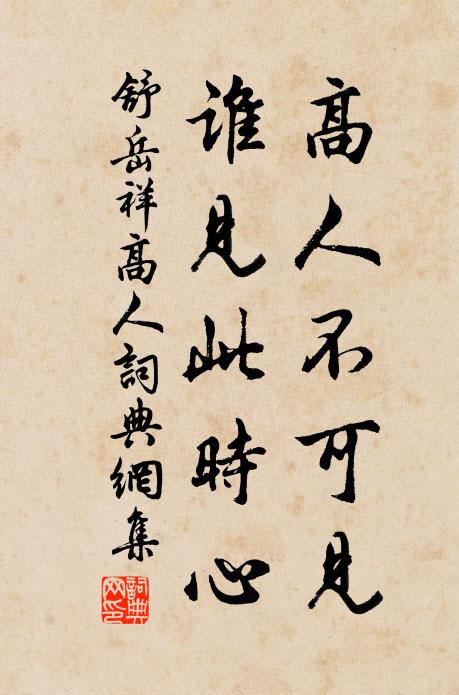 高人不可見
誰見此時心
舒岳祥高人詞典網集
詞典網印